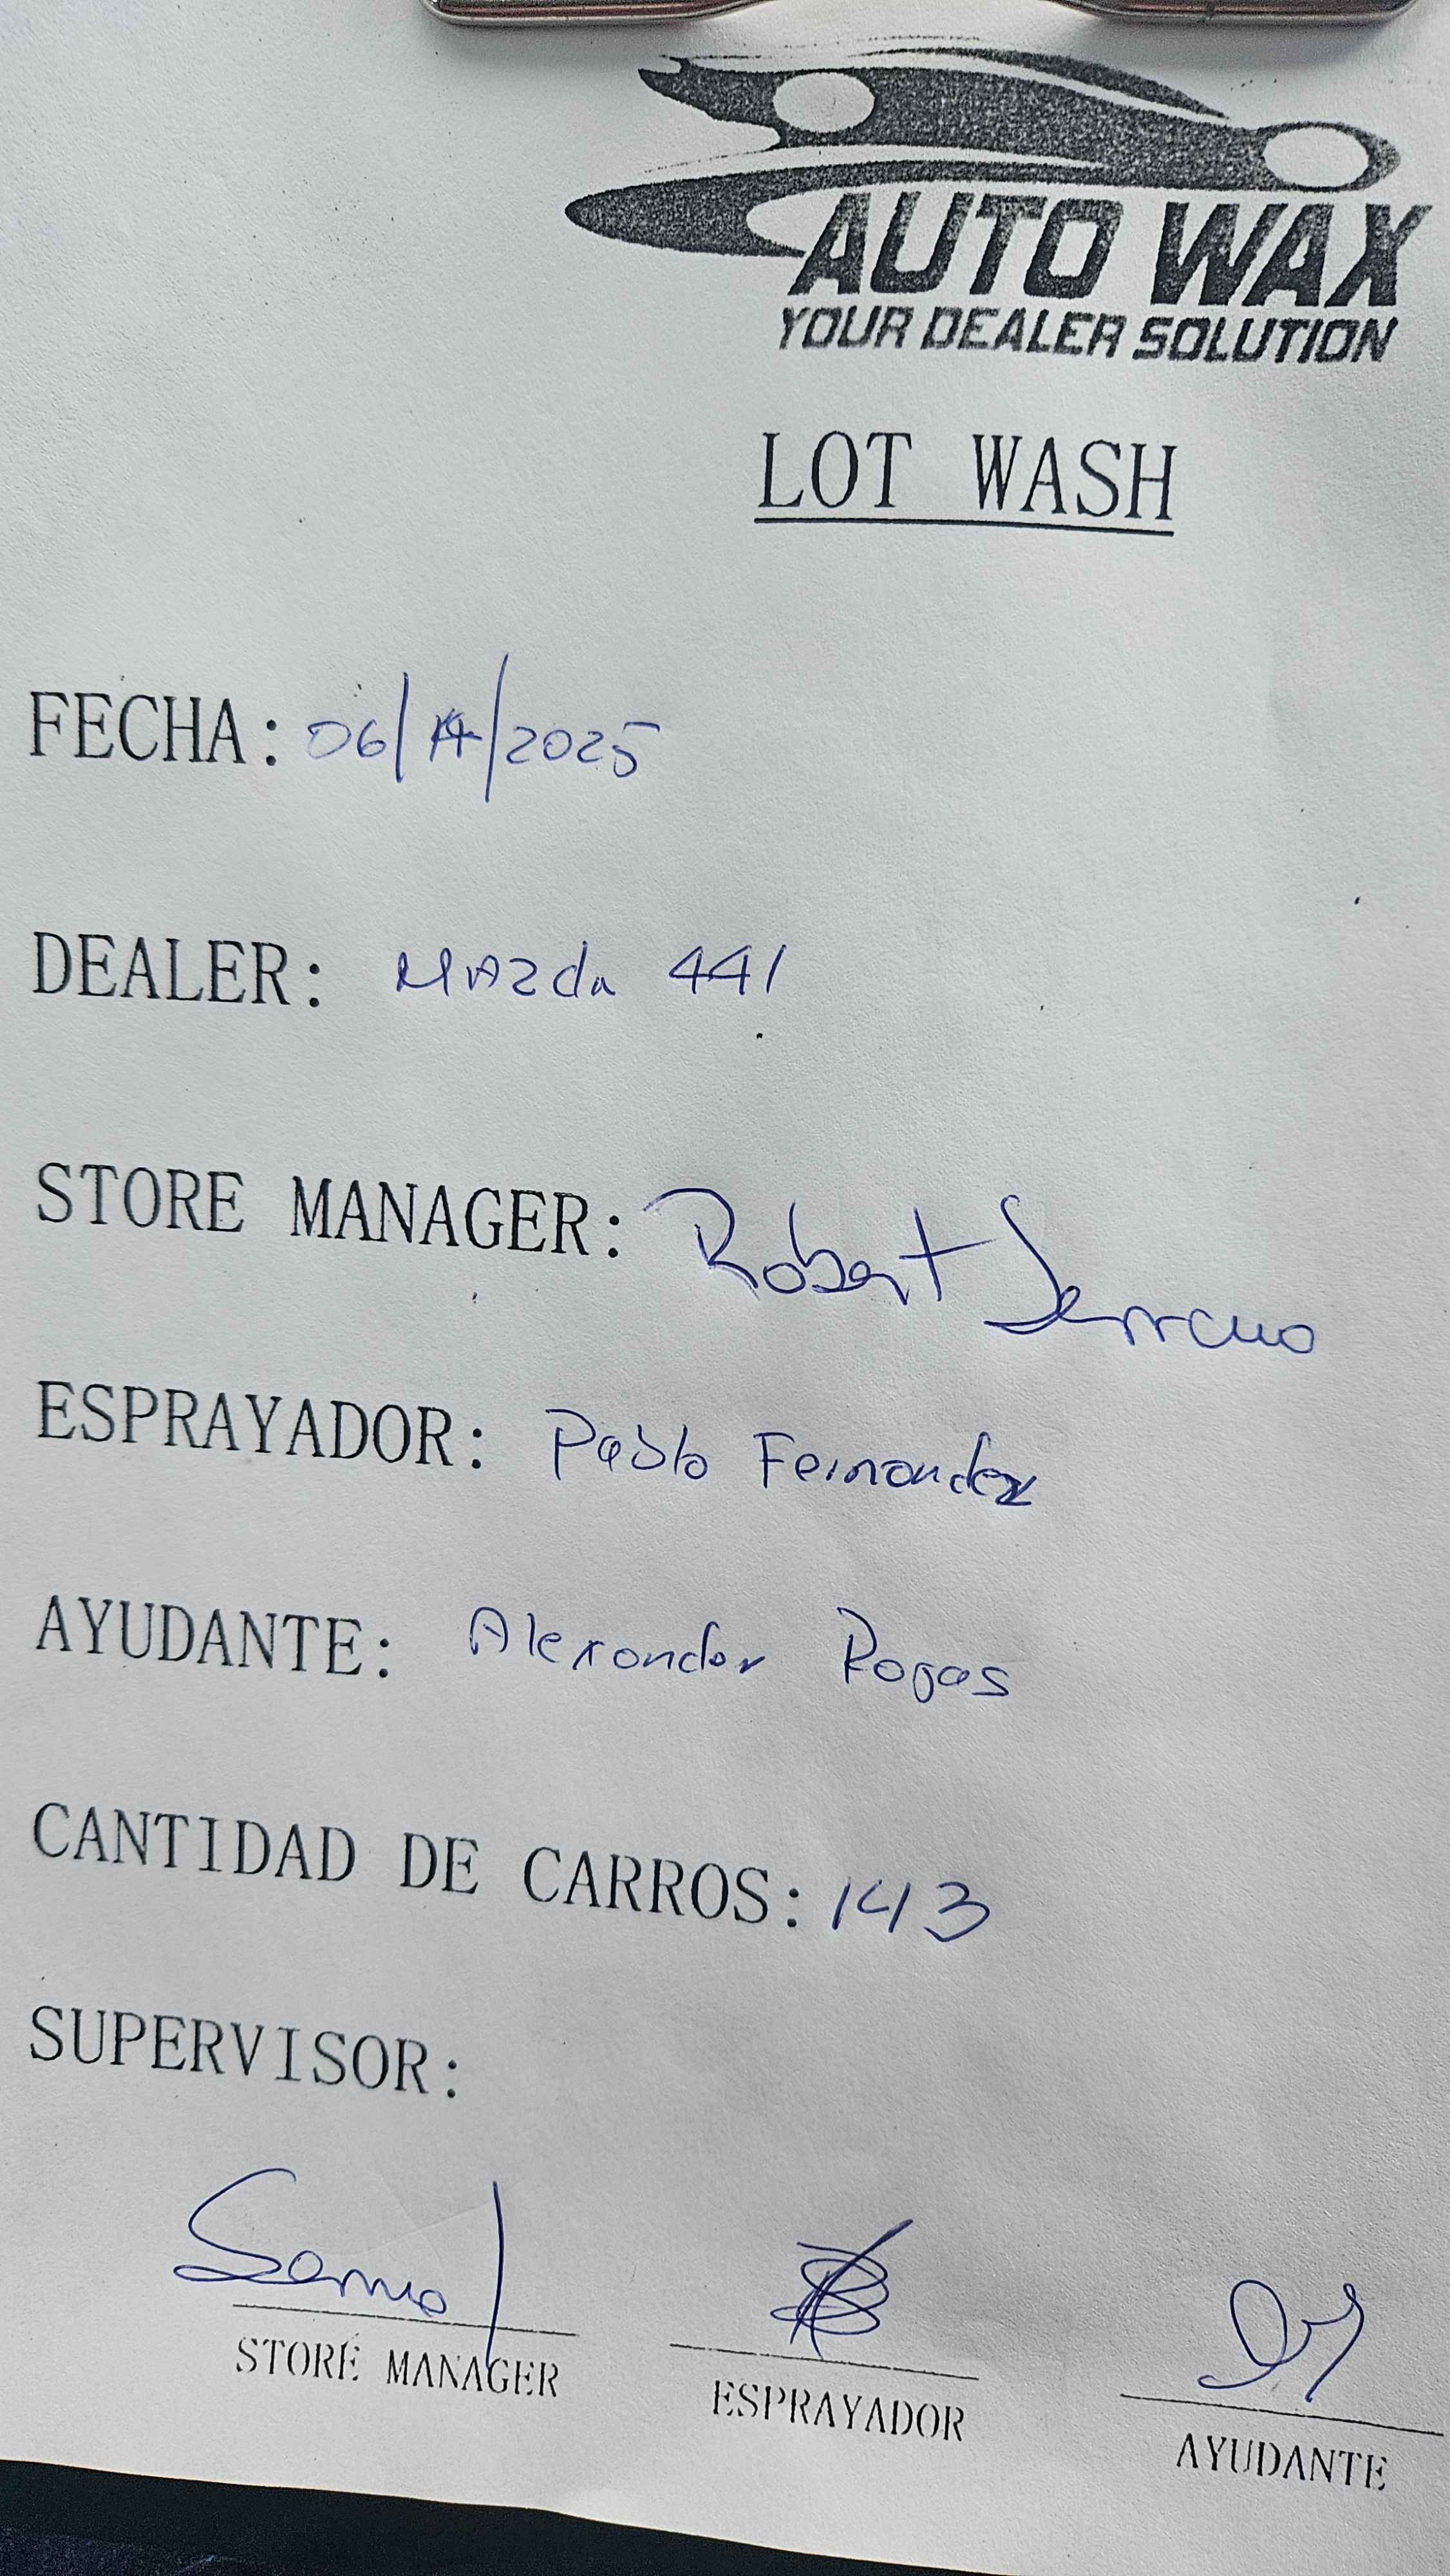 AUTO WAX
YOUR DEALER SOLUTION
LOT WASH
FECHA: 06/14/2025
DEALER: Mazda 441
STORE MANAGER: Robert Serrano
ESPRAYADOR: Pablo Fernandez
AYUDANTE: Alexander Rogas
CANTIDAD DE CARROS: 143
SUPERVISOR:
STORE MANAGER ESPRAYADOR AYUDANTE